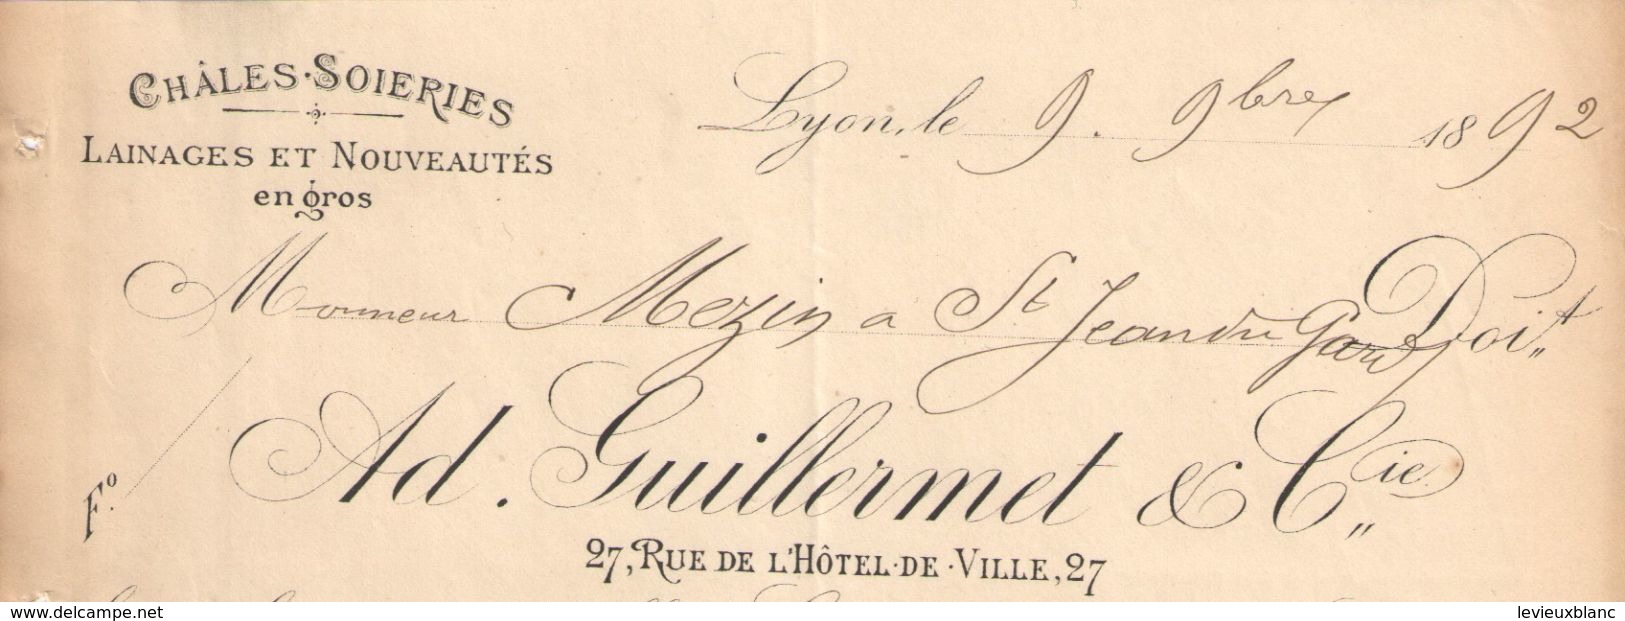 CHÂLES·SOIERIES
LAINAGES ET NOUVEAUTÉS
en gros
Lyon, le 9. 9bre 1892
Monsieur Mezin a St Jean du Gard Doit
F.º
Ad. Guillermet & Cie
27, RUE DE L'HÔTEL-DE-VILLE, 27
www.delcampe.net
levieuxblanc